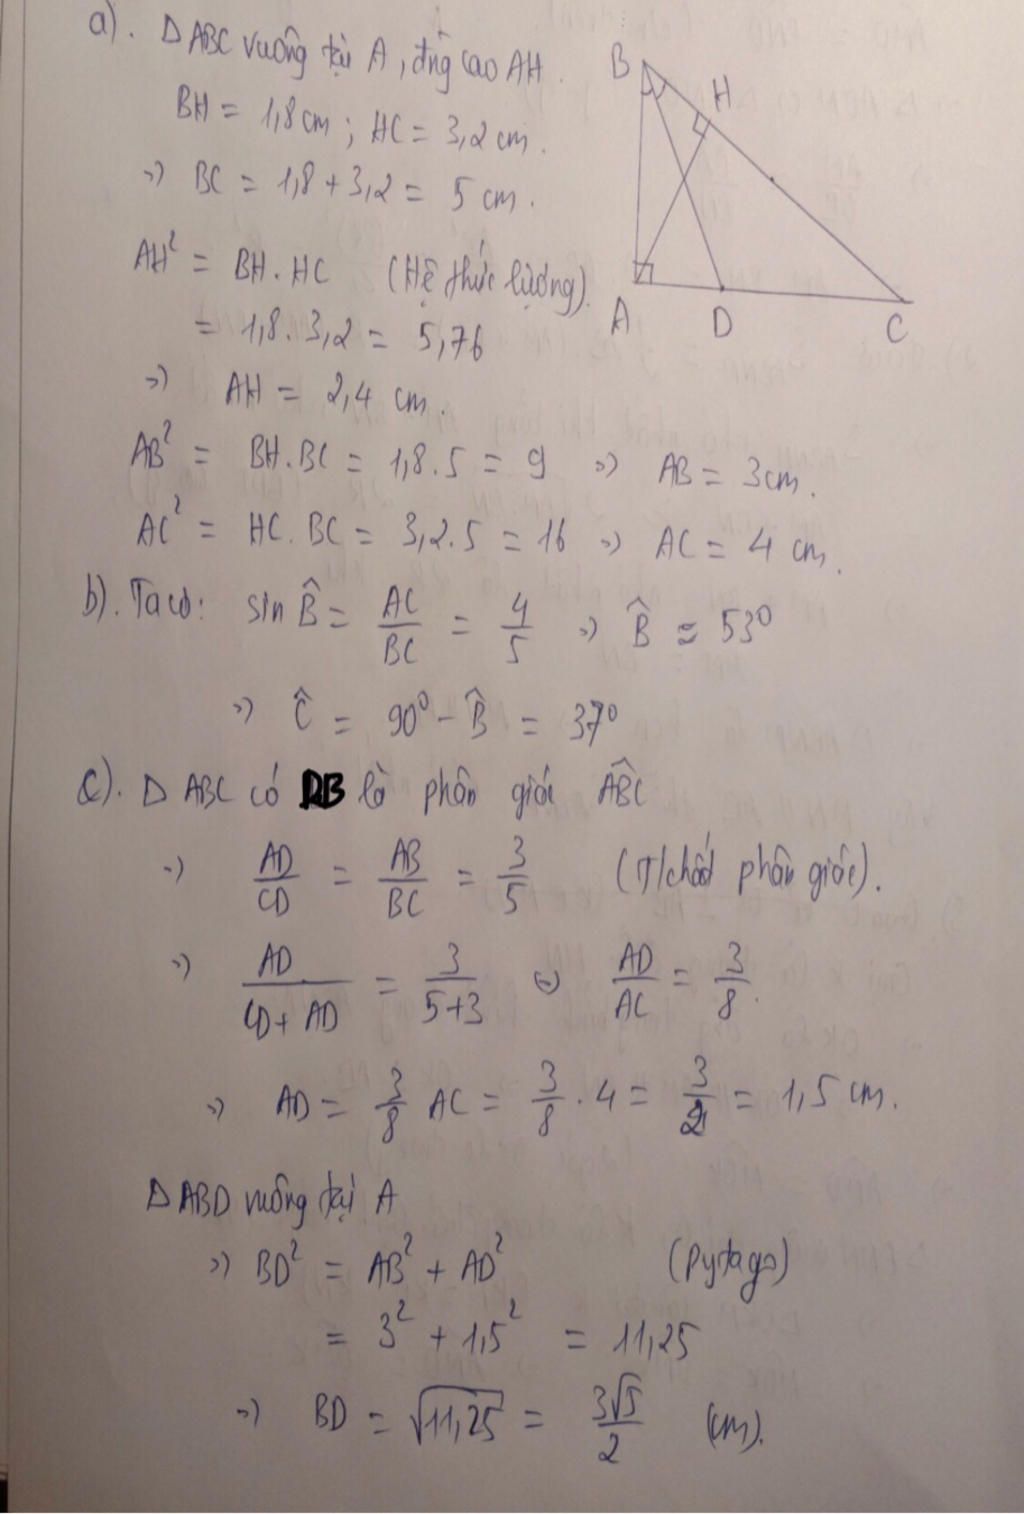 a). Δ ABC vuông tại A, đg cao AH.
BH = 1,8 cm ; HC = 3,2 cm.
=> BC = 1,8 + 3,2 = 5 cm.
AH² = BH . HC (Hệ thức lượng).
= 1,8 . 3,2 = 5,76
=> AH = 2,4 cm.
AB² = BH.BC = 1,8 . 5 = 9 => AB = 3cm.
AC² = HC . BC = 3,2 . 5 = 16 => AC = 4 cm.
B
H
A
D
C
b). Ta có: sin B̂ = AC/BC = 4/5 => B̂ ≈ 53⁰
=> Ĉ = 90⁰ - B̂ = 37⁰
c). Δ ABC có DB là phân giác ABC
=> AD/CD = AB/BC = 3/5 (T/chất phân giác).
=> AD/(CD + AD) = 3/(5+3) <=> AD/AC = 3/8.
=> AD = 3/8 AC = 3/8 . 4 = 3/2 = 1,5 cm.
Δ ABD vuông tại A
=> BD² = AB² + AD² (Pytago)
= 3² + 1,5² = 11,25
=> BD = √11,25 = 3√5/2 (cm).